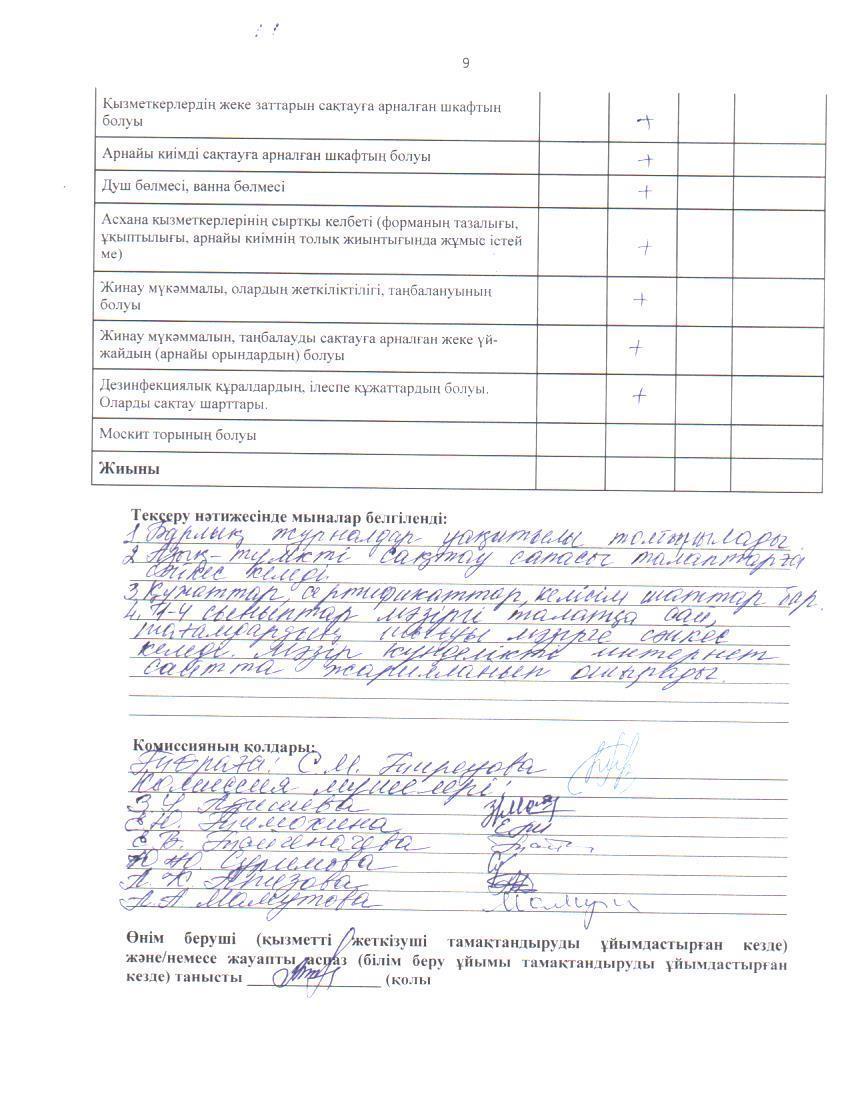 9
Қызметкерлердің жеке заттарын сақтауға арналған шкафтың
болуы +
Арнайы киімді сақтауға арналған шкафтың болуы +
Душ бөлмесі, ванна бөлмесі +
Асхана қызметкерлерінің сыртқы келбеті (форманың тазалығы,
ұқыптылығы, арнайы киімнің толық жиынтығында жұмыс істей +
ме)
Жинау мүкәммалы, олардың жеткіліктілігі, таңбалануының +
болуы
Жинау мүкәммалын, таңбалауды сақтауға арналған жеке үй- +
жайдың (арнайы орындардын) болуы
Дезинфекциялық құралдардың, ілеспе құжаттардың болуы. +
Оларды сақтау шарттары.
Москит торының болуы
Жиыны
Тексеру нәтижесінде мыналар белгіленді:
1 Барлық журналдар уақытылы толтырылады
2 Азық-түлікті сақтау сапасы талаптарға
сәйкес келеді
3. Құжаттар, сертификаттар, келісім шаттар бар.
4. сыныптар мәзірі талапқа сай,
тағамдардың шығуы мәзірге сәйкес
келеді. Мәзір күнделікті интернет
сайтта жарияланып отырады.
Комиссияның қолдары:
Төраға: С.М.
Комиссия мүшелері:
З.
Е.Ю. Тимохина
Е.В.
Ю.Ю.
А.К.
А.А Мамутова
Өнім беруші (қызметті жеткізуші тамақтандыруды ұйымдастырған кезде)
және/немесе жауапты аспаз (білім беру ұйымы тамақтандыруды ұйымдастырған
кезде) танысты (қолы